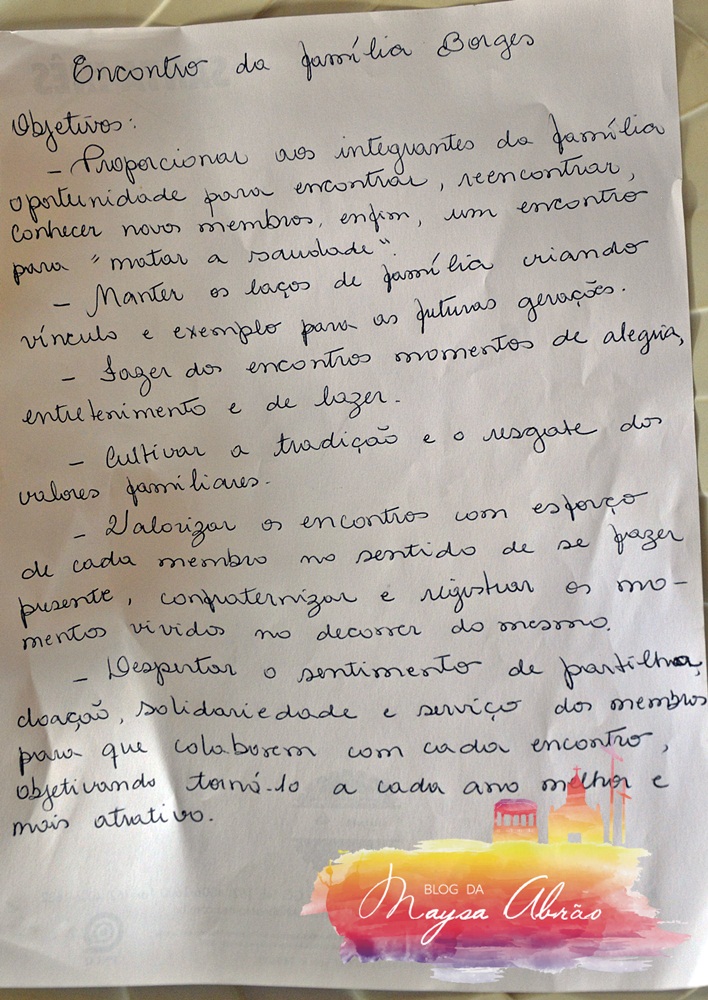 Encontro da família Borges
Objetivos:
- Proporcionar aos integrantes da família
oportunidade para encontrar, reencontrar,
conhecer novos membros, enfim, um encontro
para "matar a saudade".
- Manter os laços de família criando
vínculo e exemplo para as futuras gerações.
- Fazer dos encontros momentos de alegria,
entretenimento e de lazer.
- Cultivar a tradição e o resgate dos
valores familiares.
- Valorizar os encontros com esforço
de cada membro no sentido de se fazer
presente, confraternizar e registrar os mo-
mentos vividos no decorrer do mesmo.
- Despertar o sentimento de partilha,
doação, solidariedade e serviço dos membros
para que colaborem com cada encontro,
objetivando torná-lo a cada ano melhor e
mais atrativo.
BLOG DA
Maysa Abrão